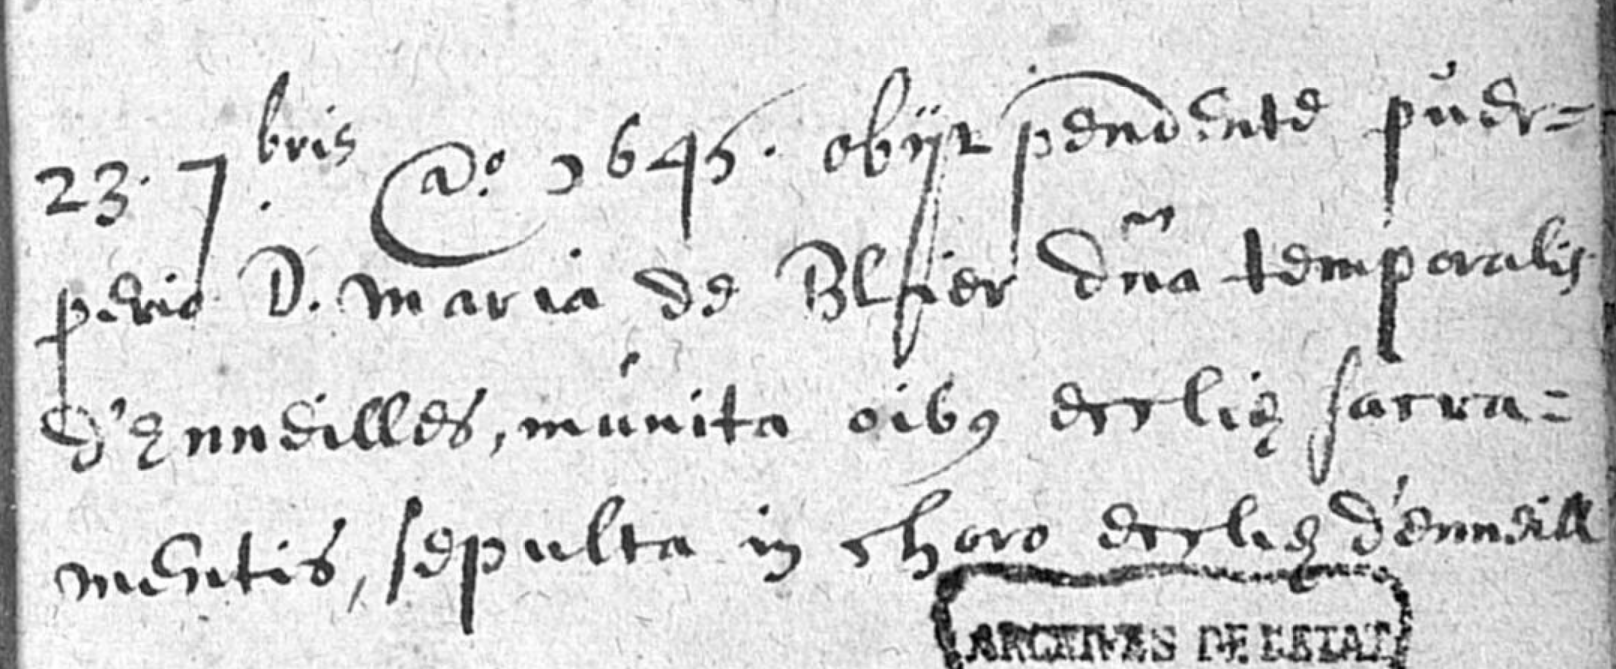 23. 7bris aº. 1645. obijt pendente puer=
perio D. Maria de Blier dña temporalis
d'Enneilles, munita oibꝰ ecclię sacra=
mentis, sepulta in choro ecclię d'enneill
ARCHIVES DE L'ETAT